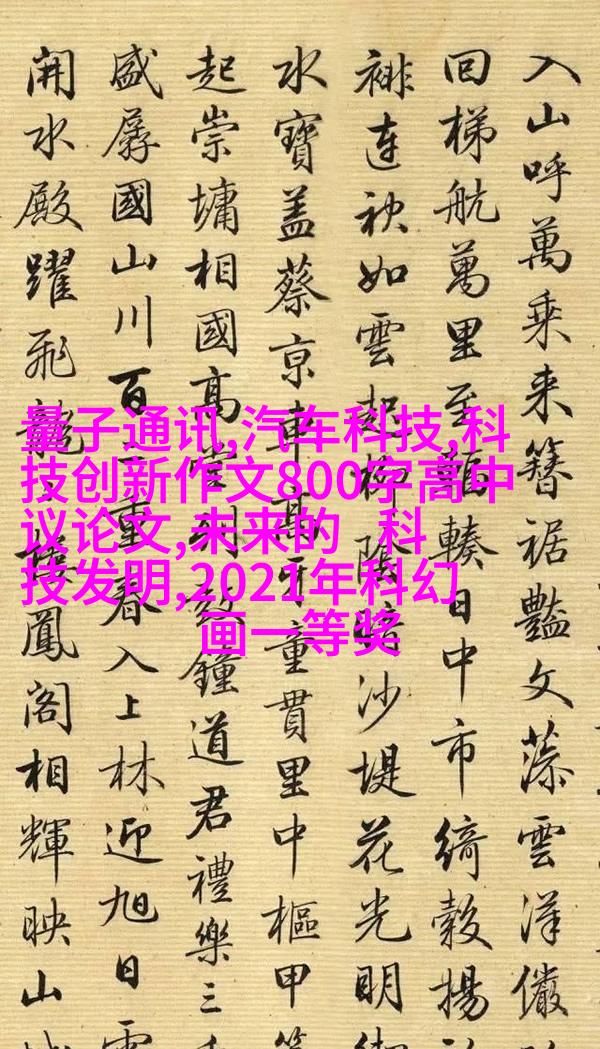 量子通讯,汽车科技,科
技创新作文800字高中
议论文,未来的 科
技发明,2021年科幻
画一等奖
入山呼萬乘来簪裾豔文藻雲洋儼
回梯航萬里至輳日中市綺縠揚
連袂如雲起柳陰沙堤花光明
水寶盖蔡京車牙重貫里中樞甲
起崇墉相國高堂列鐘道君禮樂三
盛孱國山川百二重春入上林迎旭日雲
開水殿躍飛龍樓鳳閣相輝映山